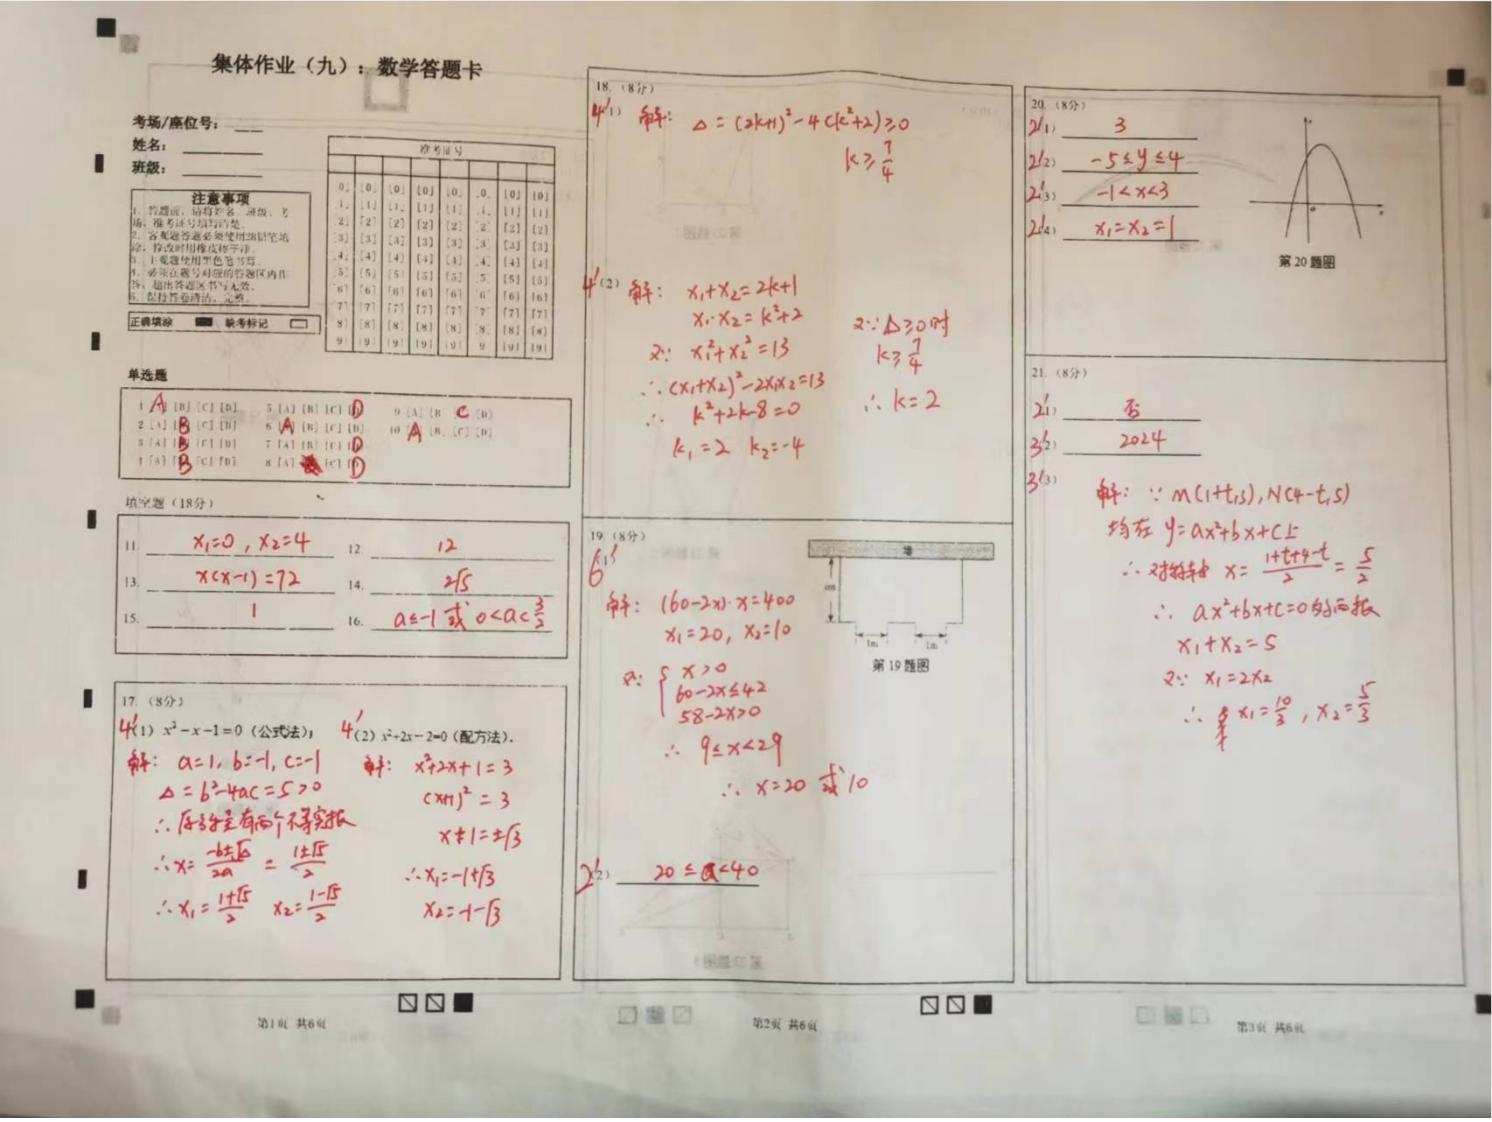 集体作业（九）：数学答题卡
考场/座位号：
姓名：
班级：
准考证号
注意事项
1. 答题前，请将姓名、班级、考
场、准考证号填写清楚。
2. 客观题答题必须使用2B铅笔填
涂，修改时用橡皮擦干净。
3. 主观题使用黑色笔书写。
4. 必须在题号对应的答题区内作
答，超出答题区书写无效。
5. 保持答卷清洁、完整。
正确填涂 缺考标记
单选题
1 A [B] [C] [D] 5 [A] [B] [C] D 9 [A] [B] C [D]
2 [A] B [C] [D] 6 A [B] [C] [D] 10 A [B] [C] [D]
3 [A] B [C] [D] 7 [A] [B] [C] D
4 [A] B [C] [D] 8 [A] [C] D
填空题（18分）
11. x₁=0，x₂=4 12. 12
13. x(x-1)=72 14. 2√5
15. 1 16. a≤-1 或 0<a<3/2
17.（8分）
4'(1) x²-x-1=0（公式法）；
解：a=1, b=-1, c=-1
△=b²-4ac=5>0
∴原方程有两个不等实根
∴x=(-b±√△)/2a=(1±√5)/2
∴x₁=(1+√5)/2 x₂=(1-√5)/2
4'(2) x²+2x-2=0（配方法）．
解：x²+2x+1=3
(x+1)²=3
x+1=±√3
∴x₁=-1+√3
x₂=-1-√3
第1页 共6页
18.（8分）
4'(1) 解：△=(2k+1)²-4(k²+2)≥0
k≥7/4
4'(2) 解：x₁+x₂=2k+1
x₁·x₂=k²+2
又∵x₁²+x₂²=13
∴(x₁+x₂)²-2x₁x₂=13
∴k²+2k-8=0
k₁=2 k₂=-4
又∵△≥0时
k≥7/4
∴k=2
19.（8分）
6'(1)
解：(60-2x)·x=400
x₁=20，x₂=10
又∵{x>0
60-2x≤42
58-2x>0
∴9≤x<29
∴x=20 或 10
墙
xm
1m 1m
第19题图
2'(2) 20≤a<40
第2页 共6页
20.（8分）
2'(1) 3
2'(2) -5≤y≤4
2'(3) -1<x<3
2'(4) x₁=x₂=1
第20题图
21.（8分）
2'(1) 否
3'(2) 2024
3'(3)
解：∵M(1+t,5), N(4-t,5)
均在 y=ax²+bx+c上
∴对称轴 x=(1+t+4-t)/2=5/2
∴ax²+bx+c=0的两根
x₁+x₂=5
又∵x₁=2x₂
∴x₁=10/3，x₂=5/3
第3页 共6页